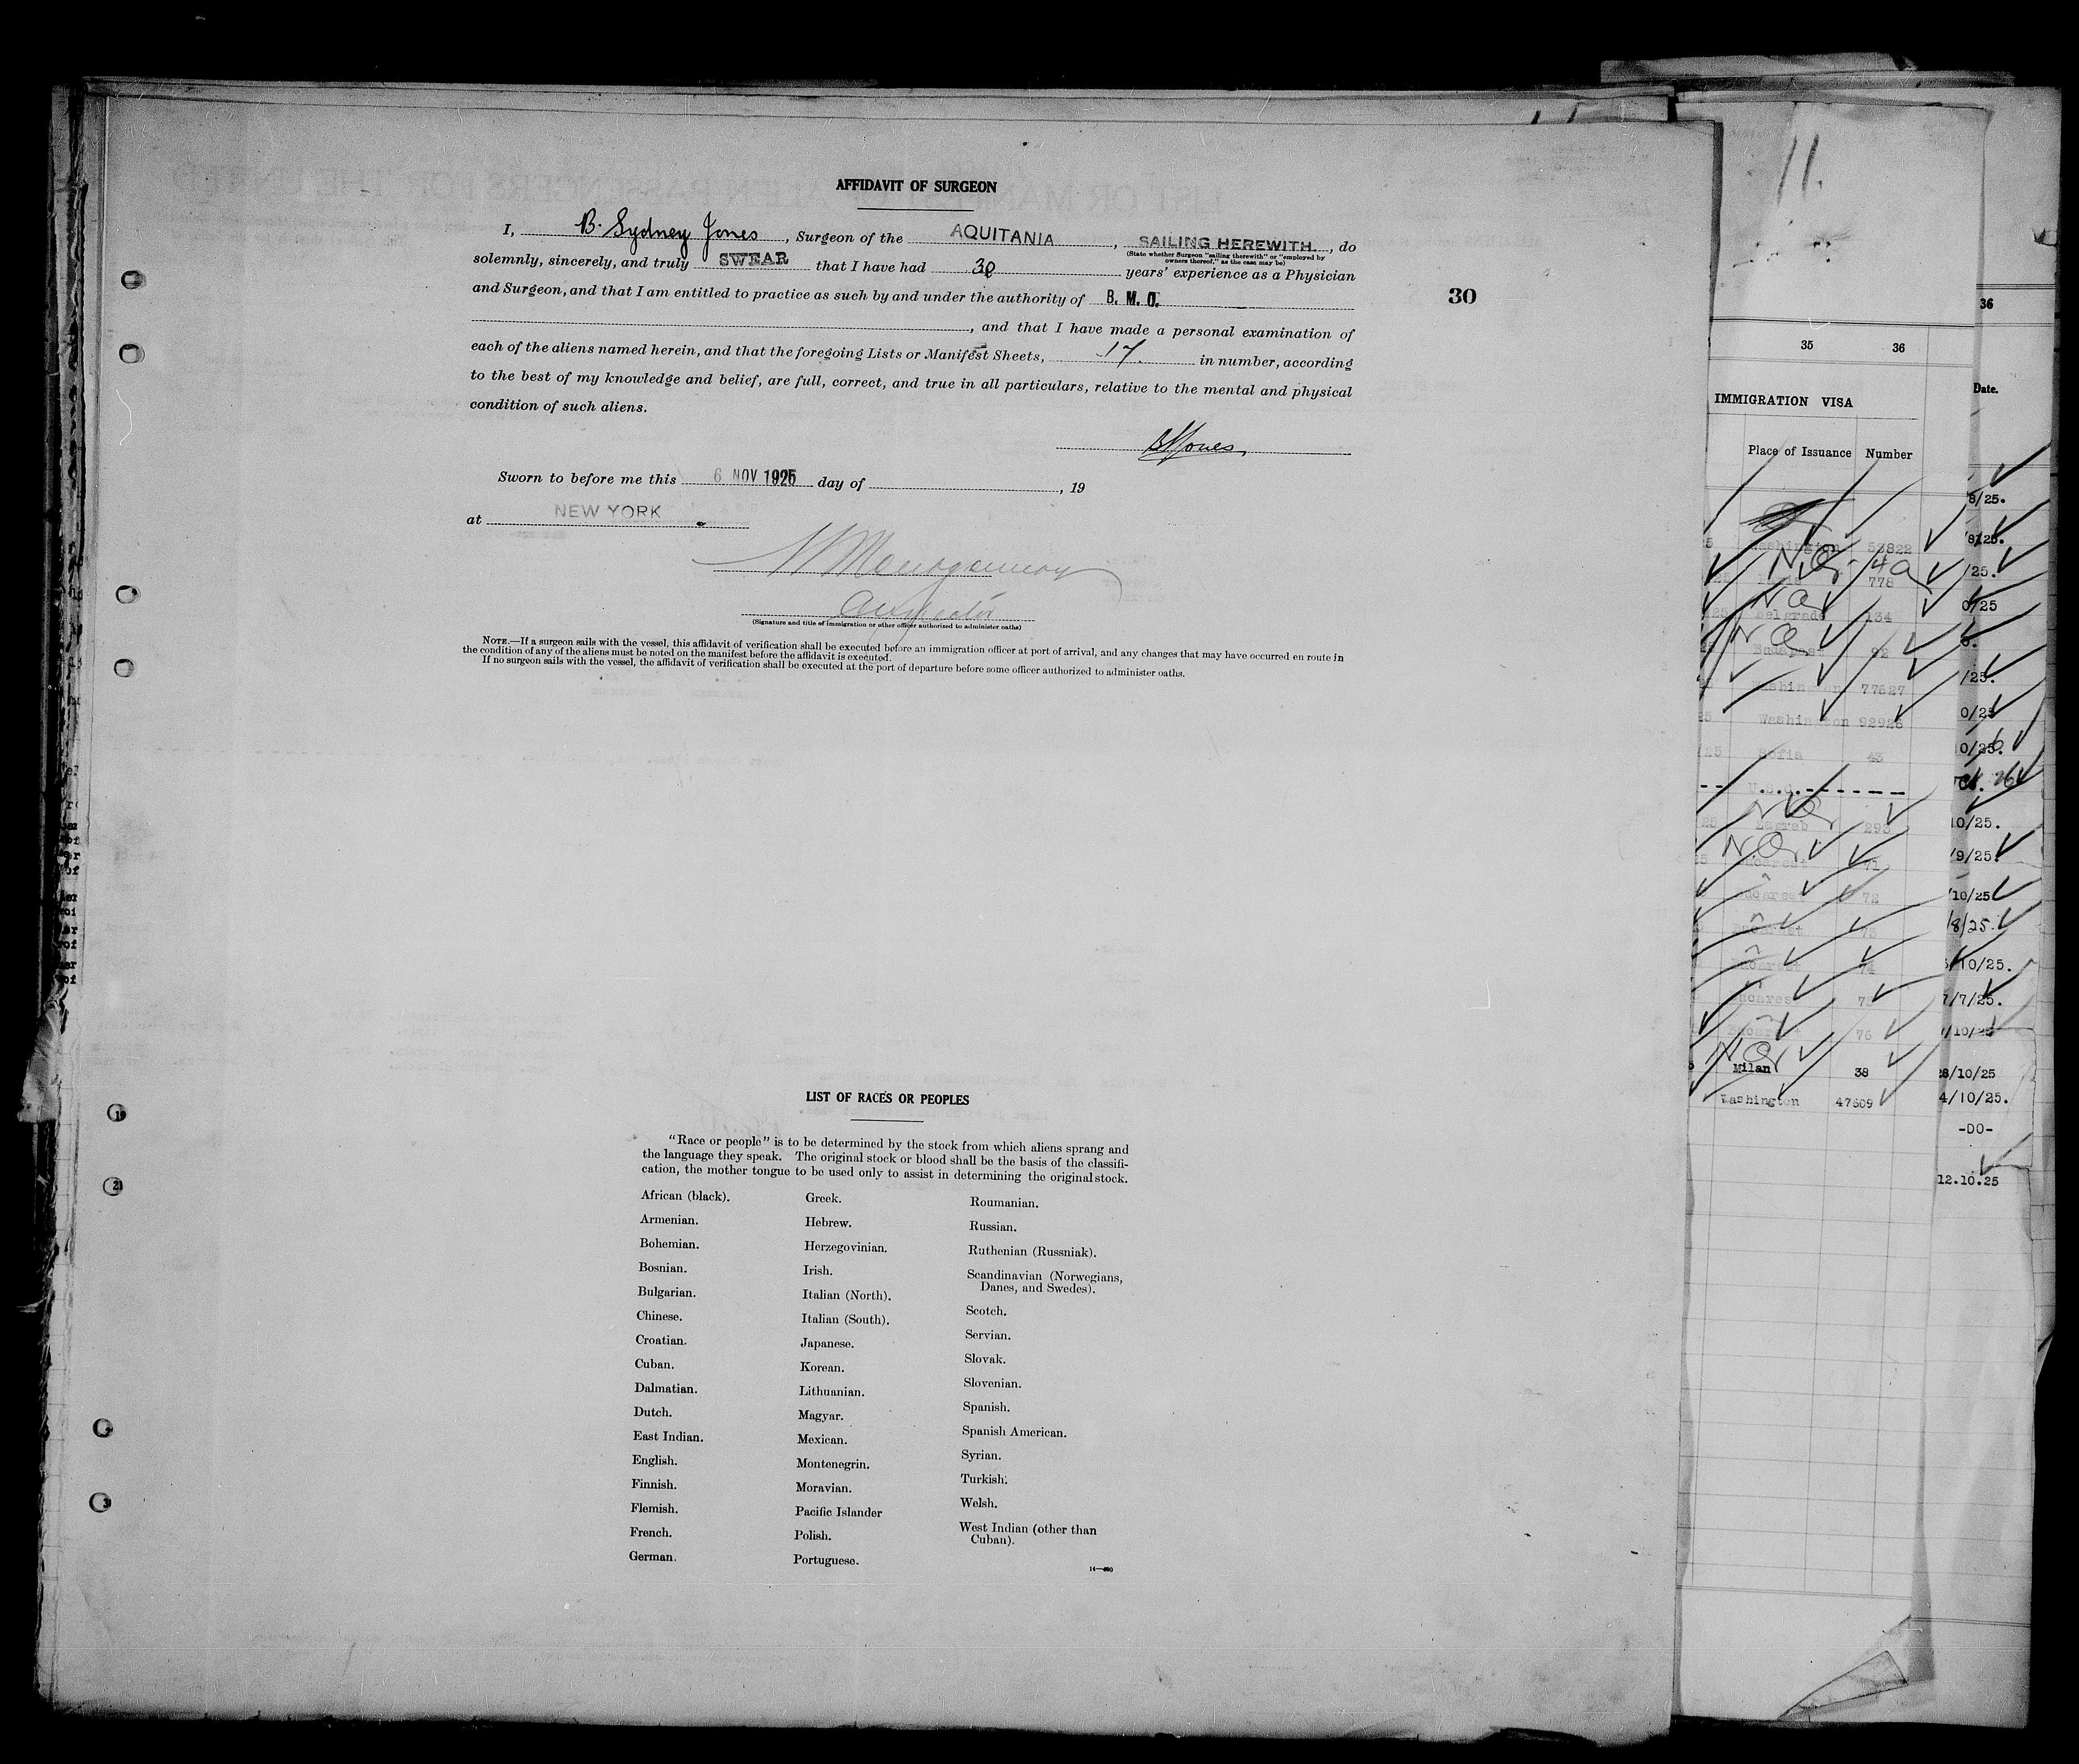 AFFIDAVIT OF SURGEON
I, B. Sydney Jones, Surgeon of the AQUITANIA, SAILING HEREWITH., do
(State whether Surgeon "sailing therewith" or "employed by
owners thereof," as the case may be)
solemnly, sincerely, and truly SWEAR that I have had 30 years' experience as a Physician
and Surgeon, and that I am entitled to practice as such by and under the authority of B. M. C.
30
, and that I have made a personal examination of
each of the aliens named herein, and that the foregoing Lists or Manifest Sheets, 17 in number, according
to the best of my knowledge and belief, are full, correct, and true in all particulars, relative to the mental and physical
condition of such aliens.
BSJones
Sworn to before me this 6 NOV 1925 day of , 19
at NEW YORK
(Signature and title of immigration or other officer authorized to administer oaths)
NOTE.—If a surgeon sails with the vessel, this affidavit of verification shall be executed before an immigration officer at port of arrival, and any changes that may have occurred en route in
the condition of any of the aliens must be noted on the manifest before the affidavit is executed.
If no surgeon sails with the vessel, the affidavit of verification shall be executed at the port of departure before some officer authorized to administer oaths.
LIST OF RACES OR PEOPLES
"Race or people" is to be determined by the stock from which aliens sprang and
the language they speak. The original stock or blood shall be the basis of the classifi-
cation, the mother tongue to be used only to assist in determining the original stock.
African (black).
Armenian.
Bohemian.
Bosnian.
Bulgarian.
Chinese.
Croatian.
Cuban.
Dalmatian.
Dutch.
East Indian.
English.
Finnish.
Flemish.
French.
German.
Greek.
Hebrew.
Herzegovinian.
Irish.
Italian (North).
Italian (South).
Japanese.
Korean.
Lithuanian.
Magyar.
Mexican.
Montenegrin.
Moravian.
Pacific Islander
Polish.
Portuguese.
Roumanian.
Russian.
Ruthenian (Russniak).
Scandinavian (Norwegians,
Danes, and Swedes).
Scotch.
Servian.
Slovak.
Slovenian.
Spanish.
Spanish American.
Syrian.
Turkish.
Welsh.
West Indian (other than
Cuban).
11.
35 36
IMMIGRATION VISA
Place of Issuance Number
Washington 53822
778
Belgrade 134
Budapest 92
77527
Washington 92926
Sofia 43
U.S.C.
Zagreb 293
71
72
74
75
76
Milan 38
Washington 47609
36
Date.
8/25.
8/25.
/25.
0/25
/25.
0/25
0/25.
10/25.
/9/25.
/10/25
/8/25.
/10/25.
7/7/25.
/10/25
28/10/25
4/10/25.
-DO-
12.10.25